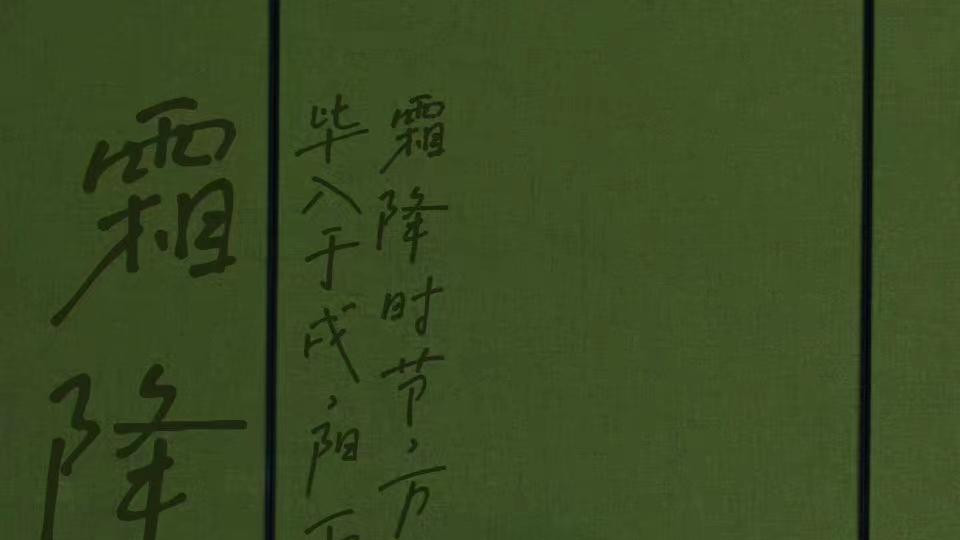 霜降时节,万
毕入于戌,阳下
霜降